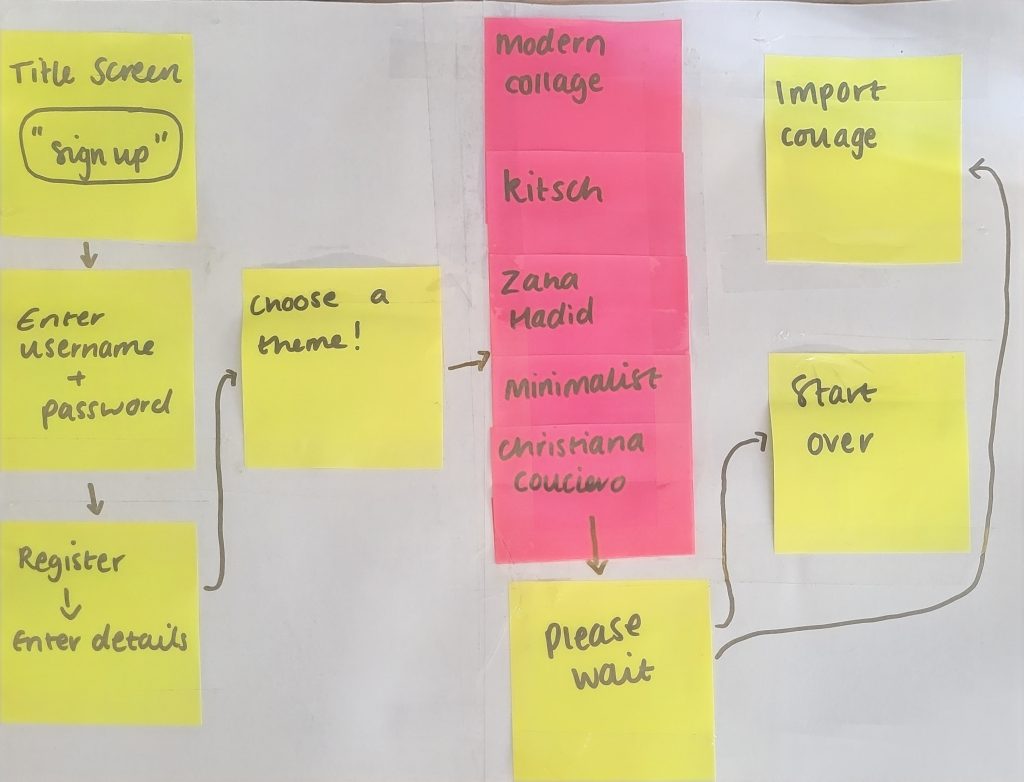 Title Screen
"sign up"
Enter
username
+
password
Register
Enter details
Choose a
theme!
Modern
collage
kitsch
Zaha
Hadid
Minimalist
Christiana
Couciero
Please
wait
Import
collage
Start
over